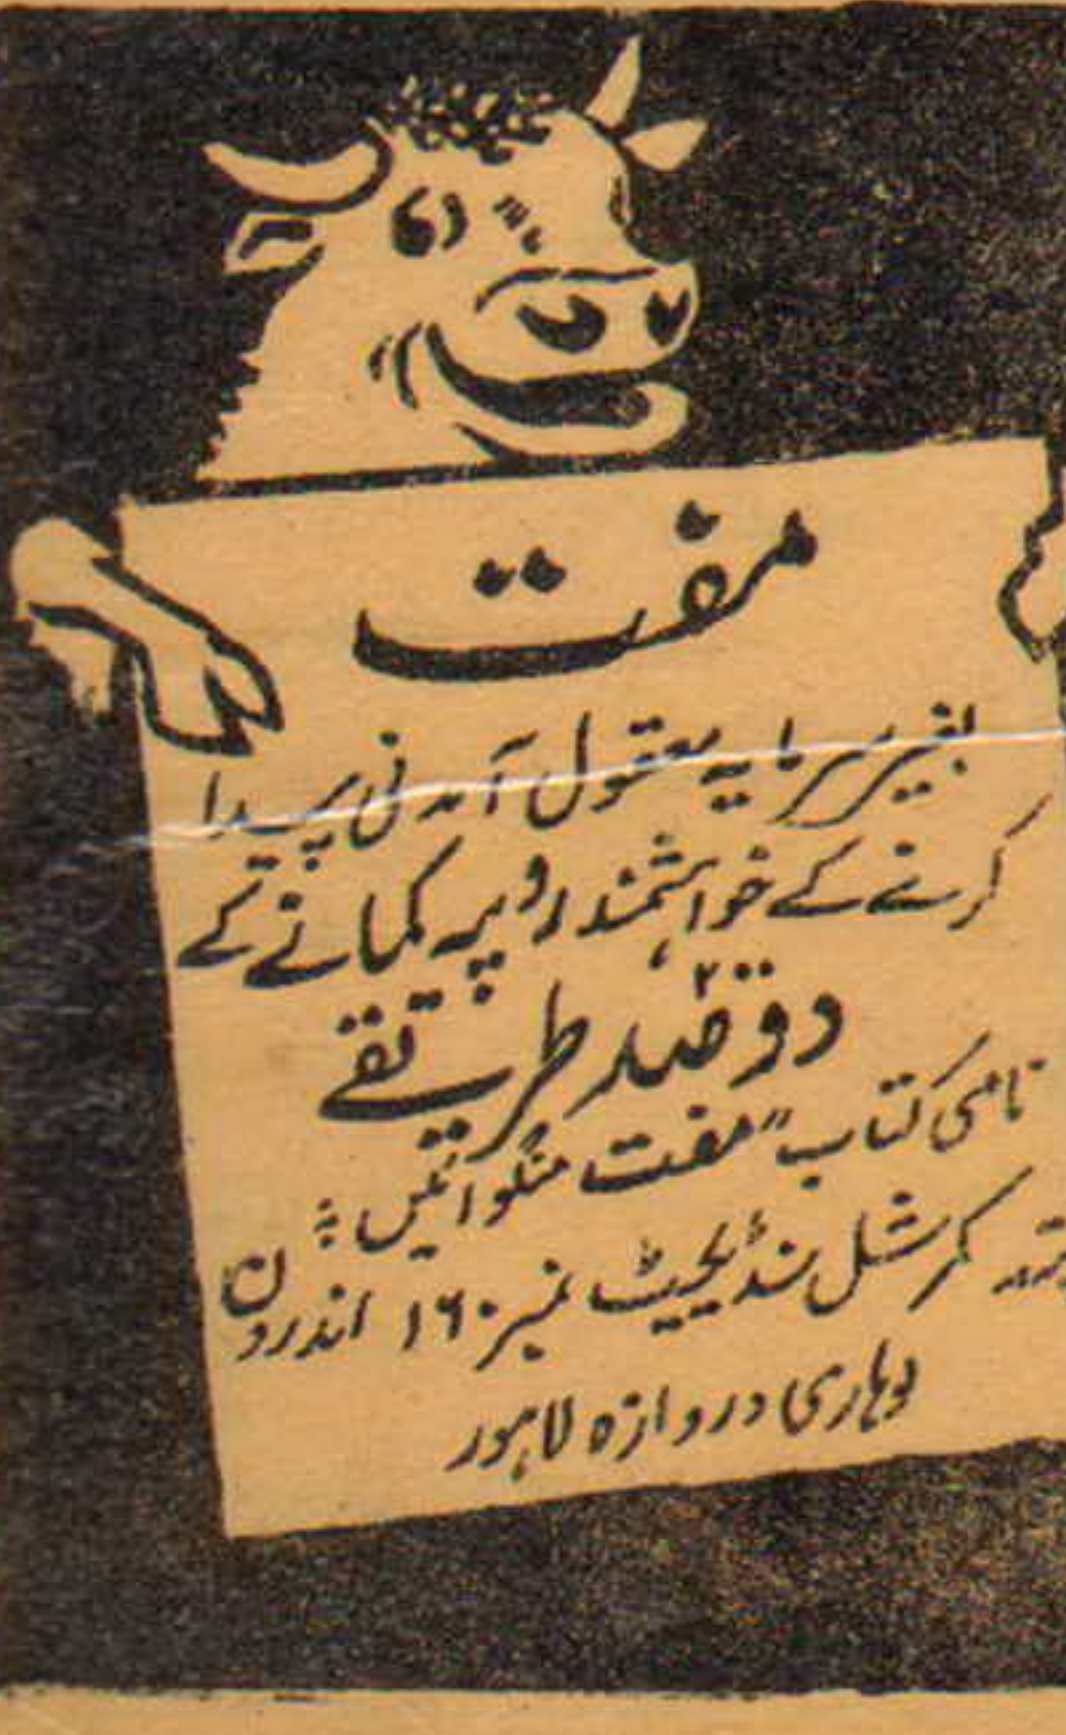 مفت
بغیر سرمایہ معقول آمدنی پیدا
کرنے کے خواہشمند روپیہ کمانے کے
دو صد طریقے
نامی کتاب "مفت منگوائیں
کمرشل سنڈیکیٹ نمبر ۱۶۰ اندرون
لوہاری دروازہ لاہور